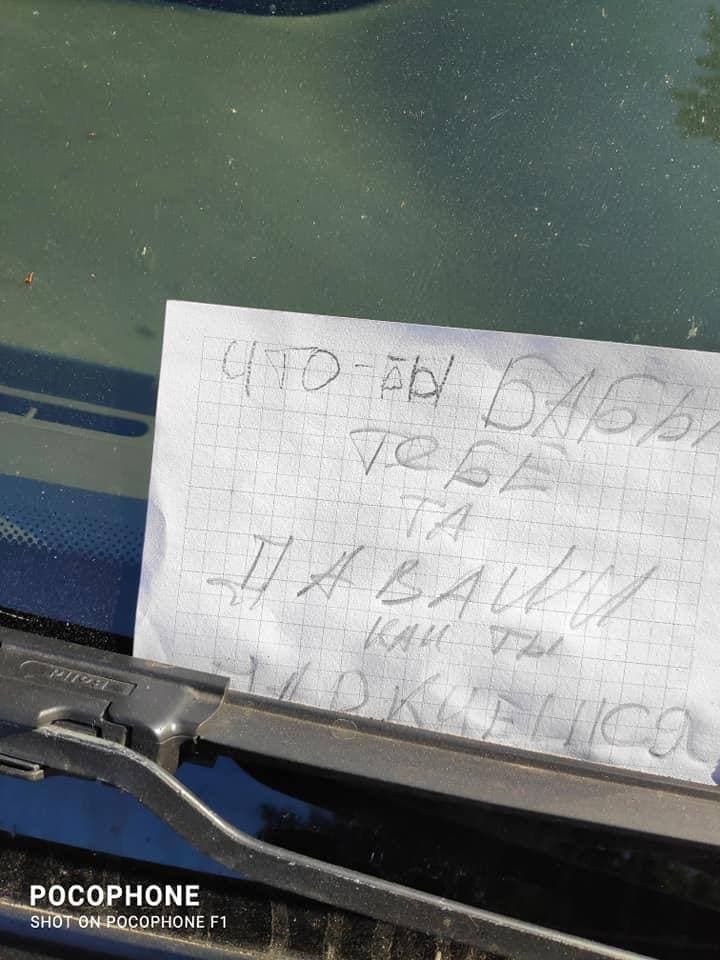 ЧТО-БЫ БАБЫ
ТЕБЕ
ТА
ДАВАЛИ
КАК ТЫ
ПАРКУЕШСЯ
POCOPHONE
SHOT ON POCOPHONE F1